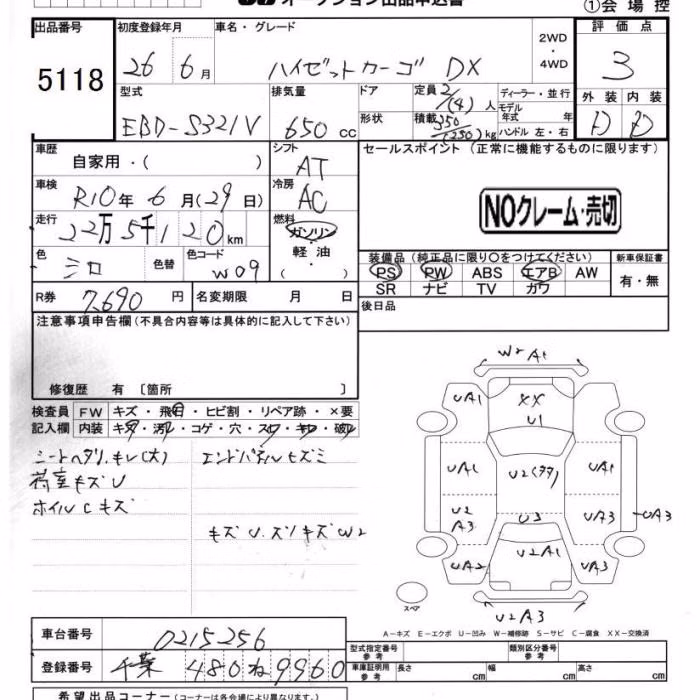 オークション出品申込書
①会場控
出品番号 初度登録年月 車名・グレード 評価点
5118 26年6月 ハイゼットカーゴ DX 2WD・4WD 3
型式 排気量 ドア 定員 2/(4)人 ディーラー・並行 外装 内装
EBD-S321V 650cc 形状 積載 350/(250)kg モデル年式 年 ハンドル 左・右 D D
車歴 自家用・( ) シフト AT セールスポイント(正常に機能するものに限ります)
車検 R10年6月(29日) 冷房 AC
NOクレーム・売切
走行 22万5千120km 燃料 ガソリン・軽油・( )
色 シロ 色替 色コード W09
装備品(純正品に限り〇をつけてください) 新車保証書
PS PW ABS エアB AW 有・無
SR ナビ TV カワ
R券 7,690円 名変期限 月 日 後日品
注意事項申告欄(不具合内容等は具体的に記入して下さい)
修復歴 有 〔箇所 〕
検査員 FW キズ・飛石・ヒビ割・リペア跡・×要
記入欄 内装 キズ・汚れ・コゲ・穴・スレ・キレ・破れ
シートヘタリ、キレ(大) エンドパネルヒズミ
荷室キズU
ホイルCキズ
キズU、ズリキズW2
W2 A1
UA1 XX UA1
U1
UA1 U2(多) UA1
U2 A3 U3 UA3 UA3
UA2 U2A1 UA3
U2A3
スペア
A-キズ E-エクボ U-凹み W-補修跡 S-サビ C-腐食 XX-交換済
車台番号 0215256
型式指定番号 参考 類別区分番号 参考
登録番号 千葉 480 ね 9960
車庫証明用 参考 長さ cm 幅 cm 高さ cm
希望出品コーナー(コーナーは各会場により異なります。)